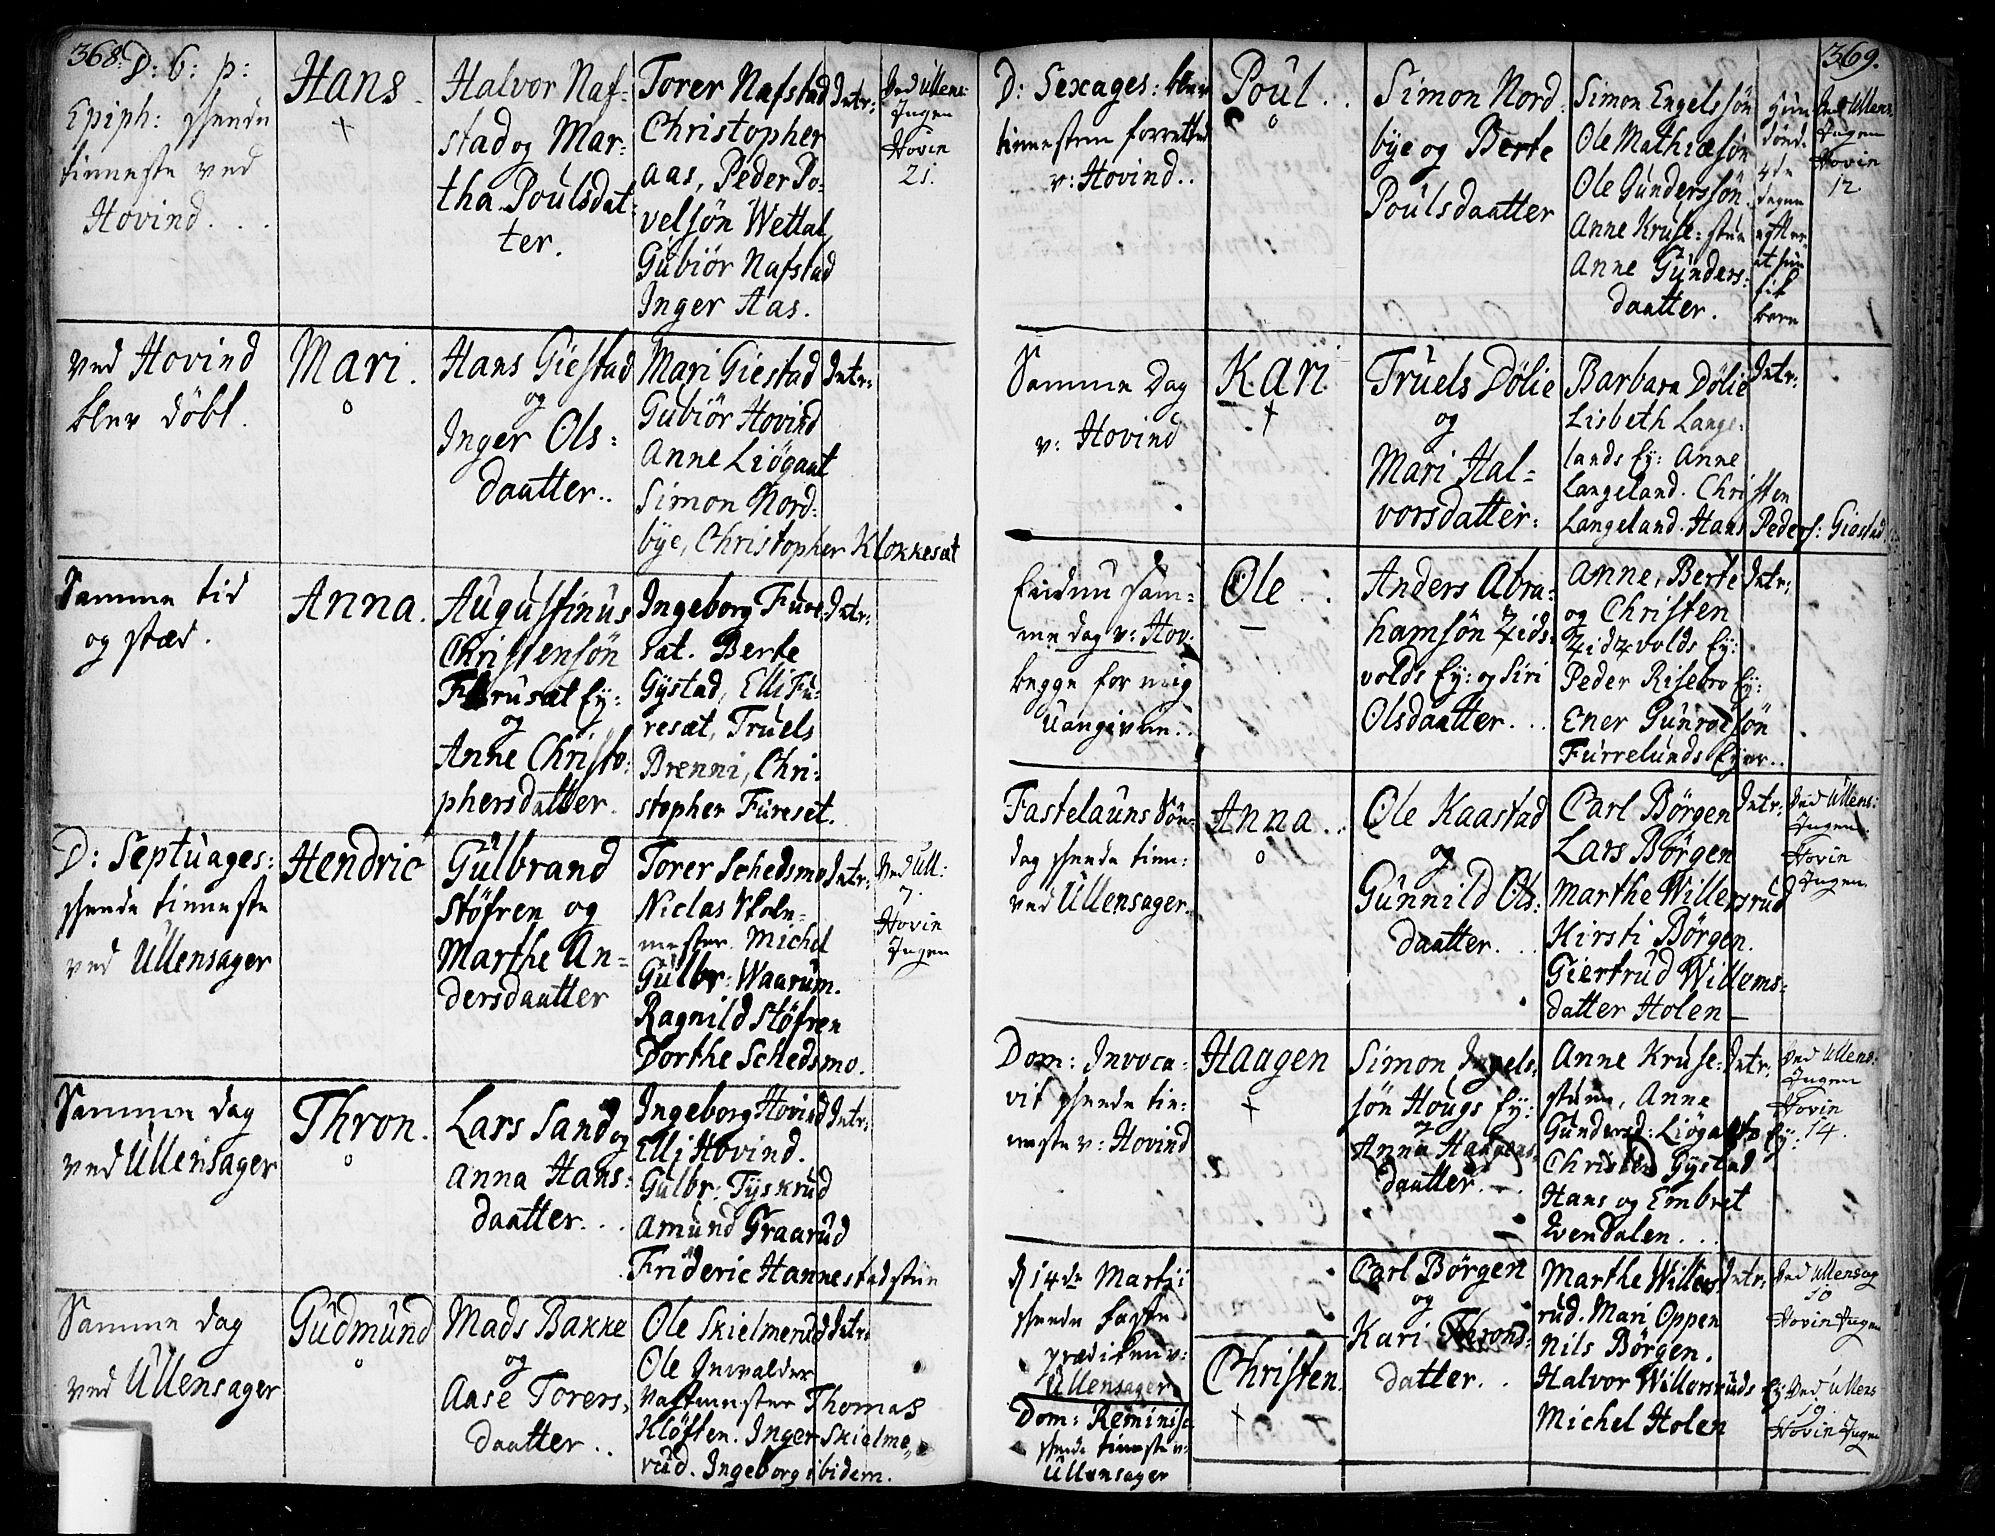 368.
D: 6: p:
Epiph: skeede
tienneste ved
Hovind...
Hans.
Halvor Naf-
stad og Mar-
tha Poulsdat-
ter.
Torer Nafstad
Christopher
Aas, Peder Po-
velsön Wettal
Gubiör Nafstad
Inger Aas.
Intr:
Ved Ullens:
Ingen
Hovin
21.
ved Hovind
blev döbt.
Mari.
Hans Giestad
og
Inger Ols=
daatter..
Mari Giestad
Gubiör Hovind
Anne Liögaat
Simon Nord-
bye, Christopher Klokkesæt
Intr:
Samme tid
og stæd.
Anna.
Augustinus
Christensön
Furusæt Ey:
og
Anne Christo:
phersdatter.
Ingeborg Fure-
sæt. Berte
Gystad, Elli Fu-
resæt, Truels
Brenni, Chri-
stopher Fureset.
Intr:
D: Septuages:
skeede tienneste
ved Ullensager
Hendric
Gulbrand
Stöfren og
Marthe An-
dersdaatter
Torer Schedsmo
Niclas Skole-
mester. Michel
Gulbr: Waarum.
Ragnild Stöfren
Dorthe Schedsmo.
Intr:
Ved Ull:
7.
Hovin
Ingen
Samme dag
ved Ullensager
Thron.
Lars Sand og
Anna Hans-
daatter...
Ingeborg Hovind
Elli Hovind.
Gulbr: Tyskrud
Amund Graarud
Frideric Hannestadstun
Intr:
Samme dag
ved Ullensager
Gudmund
Mads Bakke
og
Aase Torers-
daatter..
Ole Skielmerud
Ole
Thomas
Klöften. Inger Skielme-
rud. Ingeborg ibidem.
Intr:
369.
D: Sexages: blev
tienesten forrettet
v: Hovind..
Poul..
Simon Nord-
bye og Berte
Poulsdaatter
Simon Engelssön
Ole Mathiæsön
Ole Gunderssön
Anne Kruse=stuen
Anne Gunders:
daatter.
Hun
döde
4de
dagen
efter
at hun
fik
barn
Ved Ullens:
Ingen
Hovin
12
Samme Dag
v: Hovind
Kari
Truels Dölie
og
Mari Hal-
vorsdatter:
Barbara Dölie
Lisbeth Lange-
lands Ey: Anne
Langeland. Christen
Langeland. Hans Peders: Giestad
Intr:
Endnu sam-
me dag v: Hov:
begge for mig
uangivne..
Ole..
Anders Abra-
hamsön Zids-
volds Ey: og Siri
Olsdaatter...
Anne, Berte
og Christen
Zidzvolds Ey:
Peder Risebro Ey:
Ener Gunrodsön
Furrelunds Eyer..
Intr:
Fastelauns Sön-
dag skeede tien:
ved Ullensager.
Anna..
Ole Kaastad
og
Gunnild Ols:
daatter...
Carl Börgen
Lars Börgen
Marthe Willersrud
Kirsti Börgen.
Giertrud Willems-
datter Holen
Intr:
Ved Ullens:
Ingen.
Hovin
Ingen.
Dom: Invoca-
vit skeede tie-
neste v: Hovind
Haagen
Simon Ingels-
sön Hougs Ey:
og
Anna Haagens-
daatter.
Anne Kruse-
stuen, Anne
Gundersd: Liögaats Ey:
Christen Gystad
Hans og Embret
Evendalen...
Intr:
Ved Ullens:
Ingen
Hovin
14.
d 14de Martii
skeede faste
prædiken v:
Ullensager
Carl Börgen
og
Kari Thrond-
datter..
Marthe Willers-
rud. Mari Oppen
Nils Börgen.
Halvor Willersruds Ey
Michel Holen
Intr:
Ved Ullensag
10
Hovin Ingen
Dom: Reminisc
skeede tieneste v:
Ullensager
Christen.
Ved Ullens
19.
Hovin Ingen